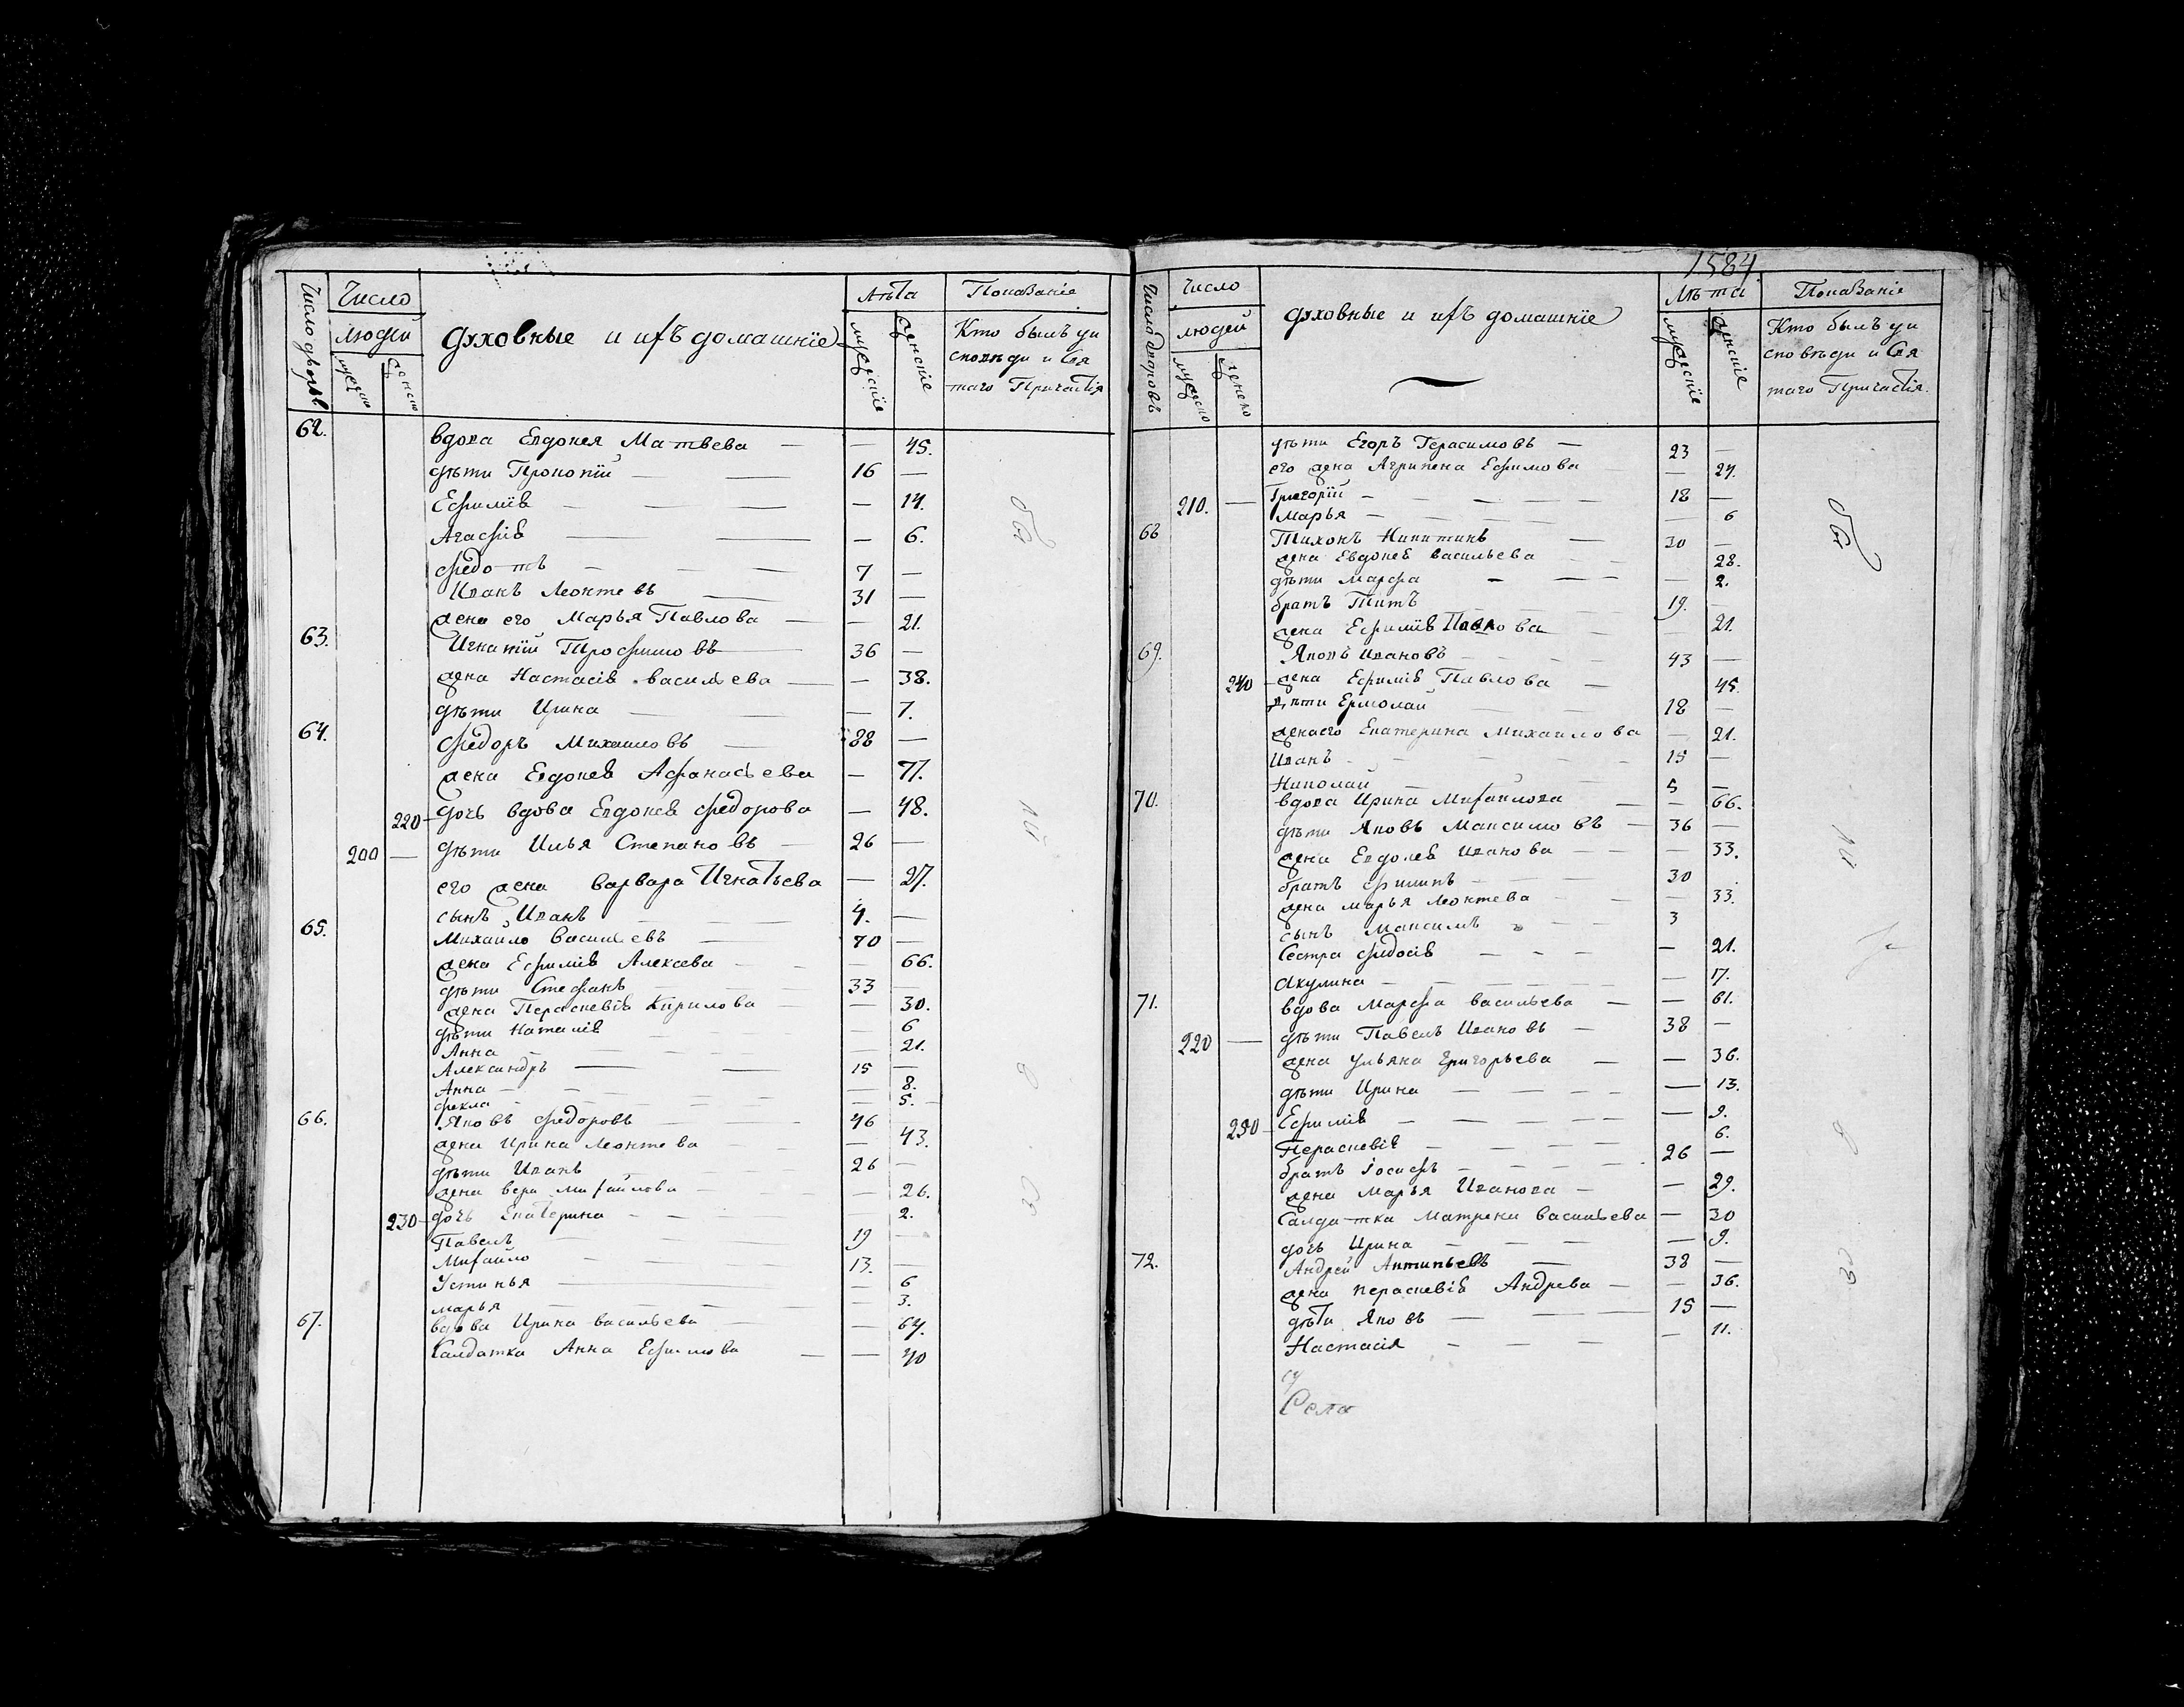 1584
Число дворовъ
Число
людей
мужеско
женско
Духовные и ихъ домашніе
Лѣта
мужескіе
женскіе
Показаніе
Кто былъ у и
сповѣди и Свя
таго Причастія
62. вдова Евдокея Матвева — — 45.
дѣти Прокопій — — 16 —
Ефиміѣ — — — — 14.
Агафіѣ — — — 6.
Федотъ — — — 7 —
Иванъ Леонтевъ — 31 —
жена его Марья Павлова — — 21.
63. Игнатій Трофимовъ — 36 —
жена Настасіѣ васильева — — 38.
дѣти Ирина — — — 7.
64. Федоръ Михаиловъ — 88 —
жена Евдокеѣ Афанасьева — 77.
220 — дочь вдова Евдокеѣ Федорова — 48.
200 — дѣти Илья Степановъ — 26 —
его жена варвара Игнатьева — 27.
сынъ Иванъ — — 4. —
65. Михайло васильевъ — 70 —
жена Ефиміѣ Алексева — — — 66.
дѣти Стефанъ — — — 33 —
жена Перасковіѣ Кирилова — — 30.
дѣти Наталіѣ — — — 6
Анна — — — — 21.
Александръ — — 15 —
Анна — — — — 8.
фекла — — — — — 5.
66. Яковъ Федоровъ — — 46
жена Ирина Леонтева — — 43.
дѣти Иванъ — — — 26 —
жена вера Михаилова — — 26.
230 — дочь Екатерина — — — 2.
Павелъ — — 19 —
Михайло — — 13. —
Устинья — — — 6
марья — — — — 3.
67. вдова Ирина васильева — — 64.
Салдатка Анна Ефимова — — 40
Число дворовъ
Число
людей
мужеско
женско
Духовные и ихъ домашніе
Лѣта
мужескіе
женскіе
Показаніе
Кто былъ у и
сповѣди и Свя
таго Причастія.
дѣти Егоръ Герасимовъ — 23 —
его жена Агрипена Ефимова — — 24.
210. — Григорій — — — — — 18 —
Марья — — — — — 6
68 Тихонъ Никитинъ — 30 —
жена Евдокеѣ васильева — — 28.
дѣти Марфа — — — — 2.
братъ Титъ — — — 19. —
жена Ефиміѣ Павлова — — 21.
69. Яковъ Ивановъ — — — 43 —
240 — жена Ефиміѣ Павлова — — 45.
Дѣти Ермолай — — 18 —
жена его Екатерина Михаилова — 21.
Иванъ — — — — — 15 —
Николай — — 5 —
70. вдова Ирина Михаилова — — 66.
дѣти Яковъ Максимовъ — 36 —
жена Евдокеѣ Иванова — — — 33.
братъ Филипъ — — — 30
жена марья Леонтева — — — 33.
сынъ Максимъ — 3
Сестра Федосіѣ — — — — 21.
Акулина — — — — — 17.
71. вдова Марфа васильева — — 61.
220 — дѣти Павелъ Ивановъ — 38 —
жена Ульяна Григорьева — — 36.
дѣти Ирина — — — — — 13.
250 — Ефиміѣ — — — — — 9.
Перасковіѣ — — — 6.
братъ Іосифъ — — — — 26 —
жена Марья Иванова — — 29.
Салдатка Матрена васильева — 30
дочь Ирина — — — — 9.
72. Андрей Антипьевъ — 38 —
жена перасковіѣ Андрева — — 36.
дѣти Яковъ — — — 15 —
Настасія — — — — 11.
Села